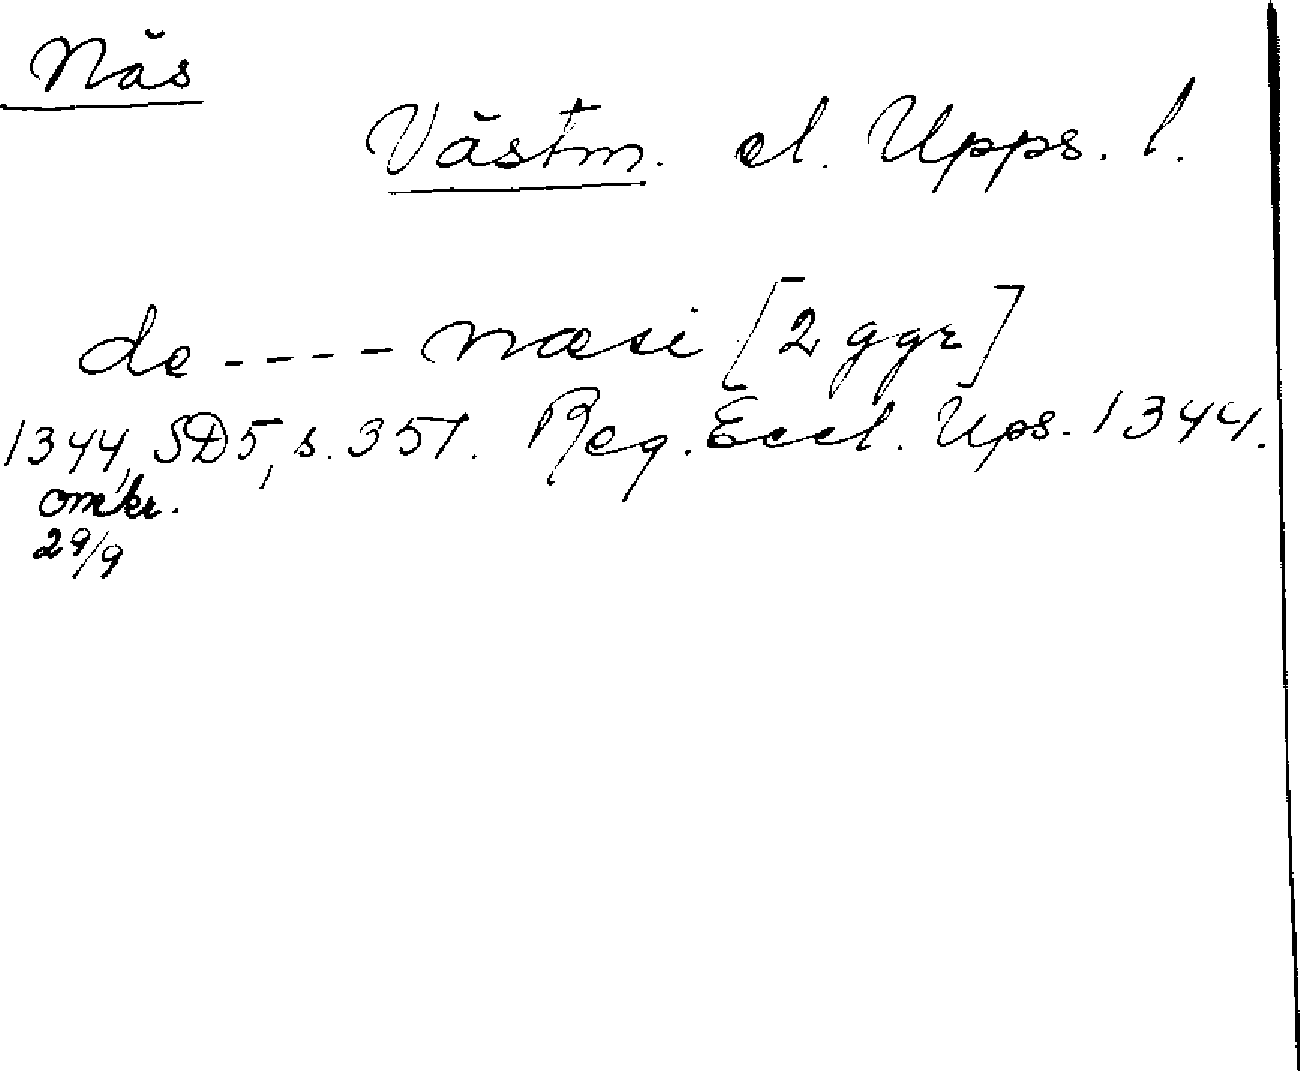 Näs
Västm. el. Upps. l.
de ---- næsi [2 ggr]
1344, SD5, s. 351. Reg. Eccl. Ups. 1344.
omkr.
29/9